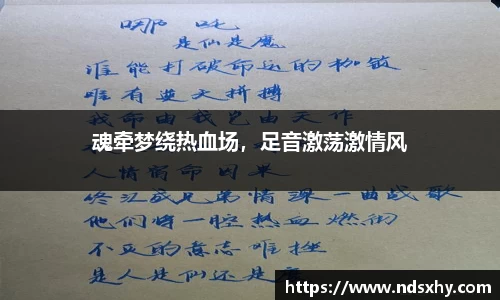 哪吒
是仙是魔
谁能打破命运的枷锁
唯有逆天拼搏
我命由我岂由天作
魂牵梦绕热血场，足音激荡激情风
人情宿命因果
兄弟情深一曲战歌
他们将一腔热血燃烧
不灭的意志难挫
是人是仙还是魔
https://www.ndsxhy.com